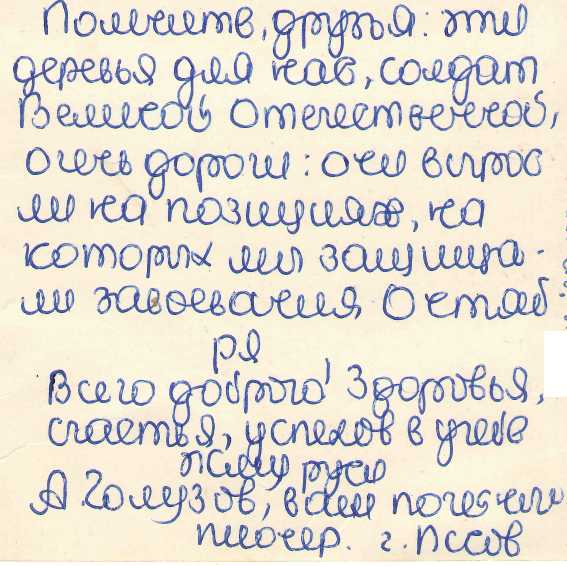 Помните, друзья: эти
деревья для нас, солдат
Великой Отечественной,
очень дороги: они вырос
ли на позициях, на
которых мы защища-
ли завоевания Октяб-
ря
Всего доброго! Здоровья,
счастья, успехов в учебе
А. Голузов, ваш почетный
пионер. г. Псков